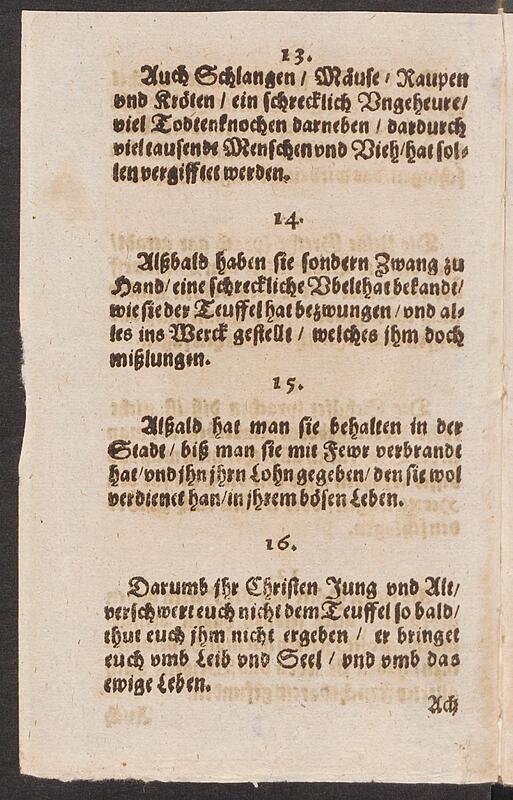 13.
Auch Schlangen / Mäuse / Raupen
vnd Kröten / ein schrecklich Vngeheure/
viel Todtenknochen darneben / dardurch
viel tausende Menschen vnd Vieh/hat sol-
len vergifftet werden.
14.
Alßbald haben sie sondern Zwang zu
Hand/eine schreckliche Vbelthat bekandt/
wie sie der Teuffel hat bezwungen/vnd al-
les ins Werck gestellt / welches jhm doch
mißlungen.
15.
Alßald hat man sie behalten in der
Stadt/ biß man sie mit Fewr verbrandt
hat/vnd jhn jhrn Lohn gegeben/den sie wol
verdienet han/in jhrem bösen Leben.
16.
Darumb jhr Christen Jung vnd Alt/
verschwert euch nicht dem Teuffel so bald/
thut euch jhm nicht ergeben / er bringet
euch vmb Leib vnd Seel / vnd vmb das
ewige Leben.
Ach